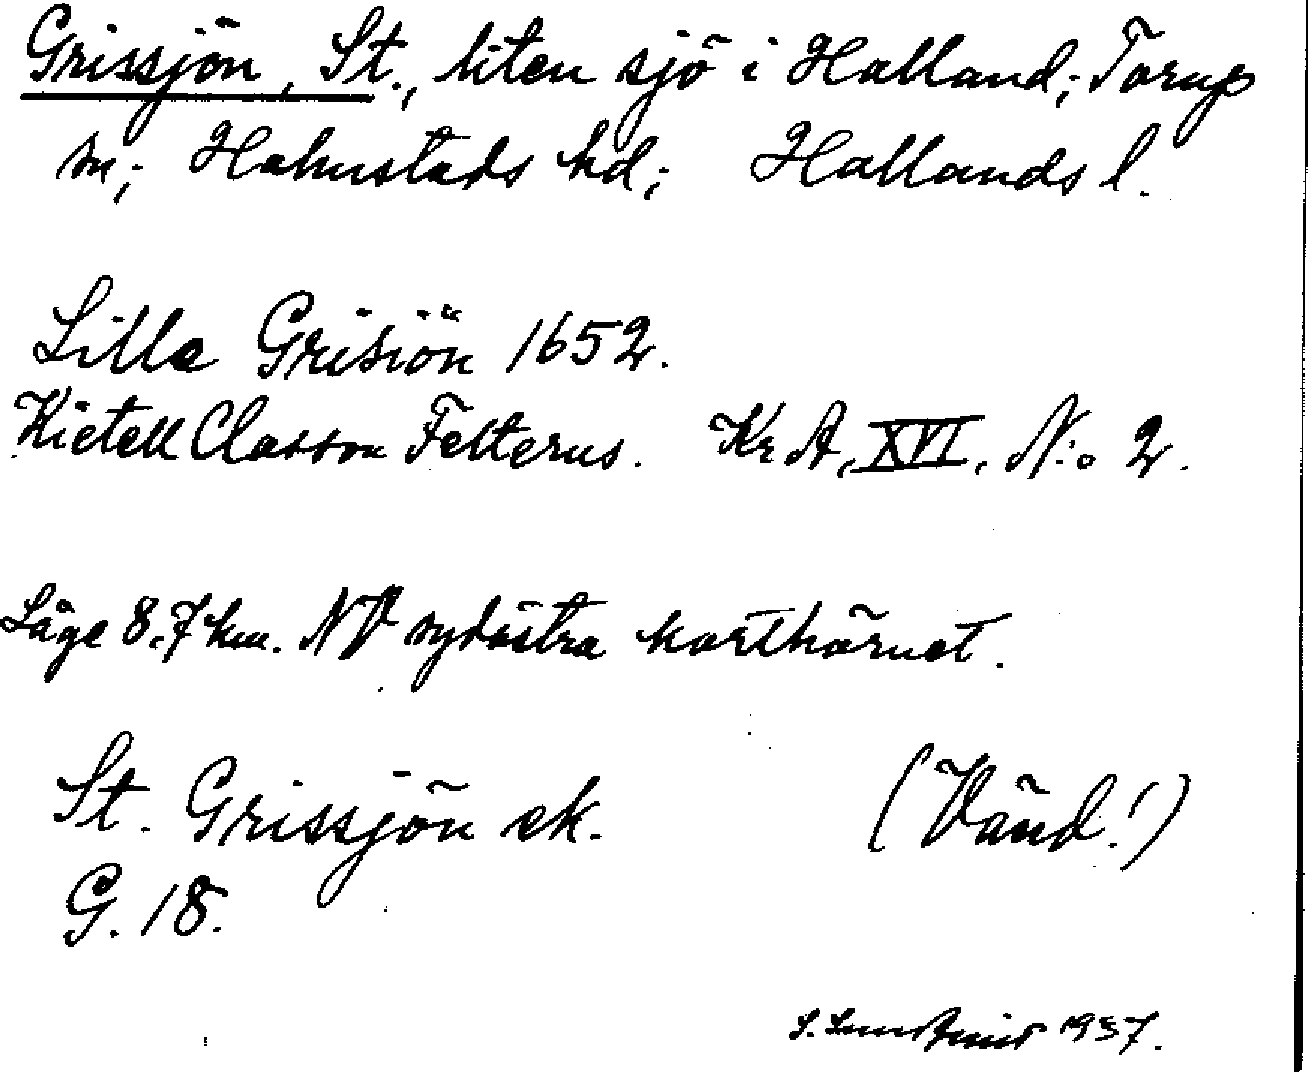 Grissjön, St., liten sjö i Halland; Torup
sn; Halmstads hd; Hallands l.
Lilla Grisiön 1652.
Kietell Classon Felterus. Kr A, XVI, N:o 2.
Läge 8.7 km. NV sydöstra korthörnet.
St. Grissjön ek.
(Vänd!)
G. 18.
1937.